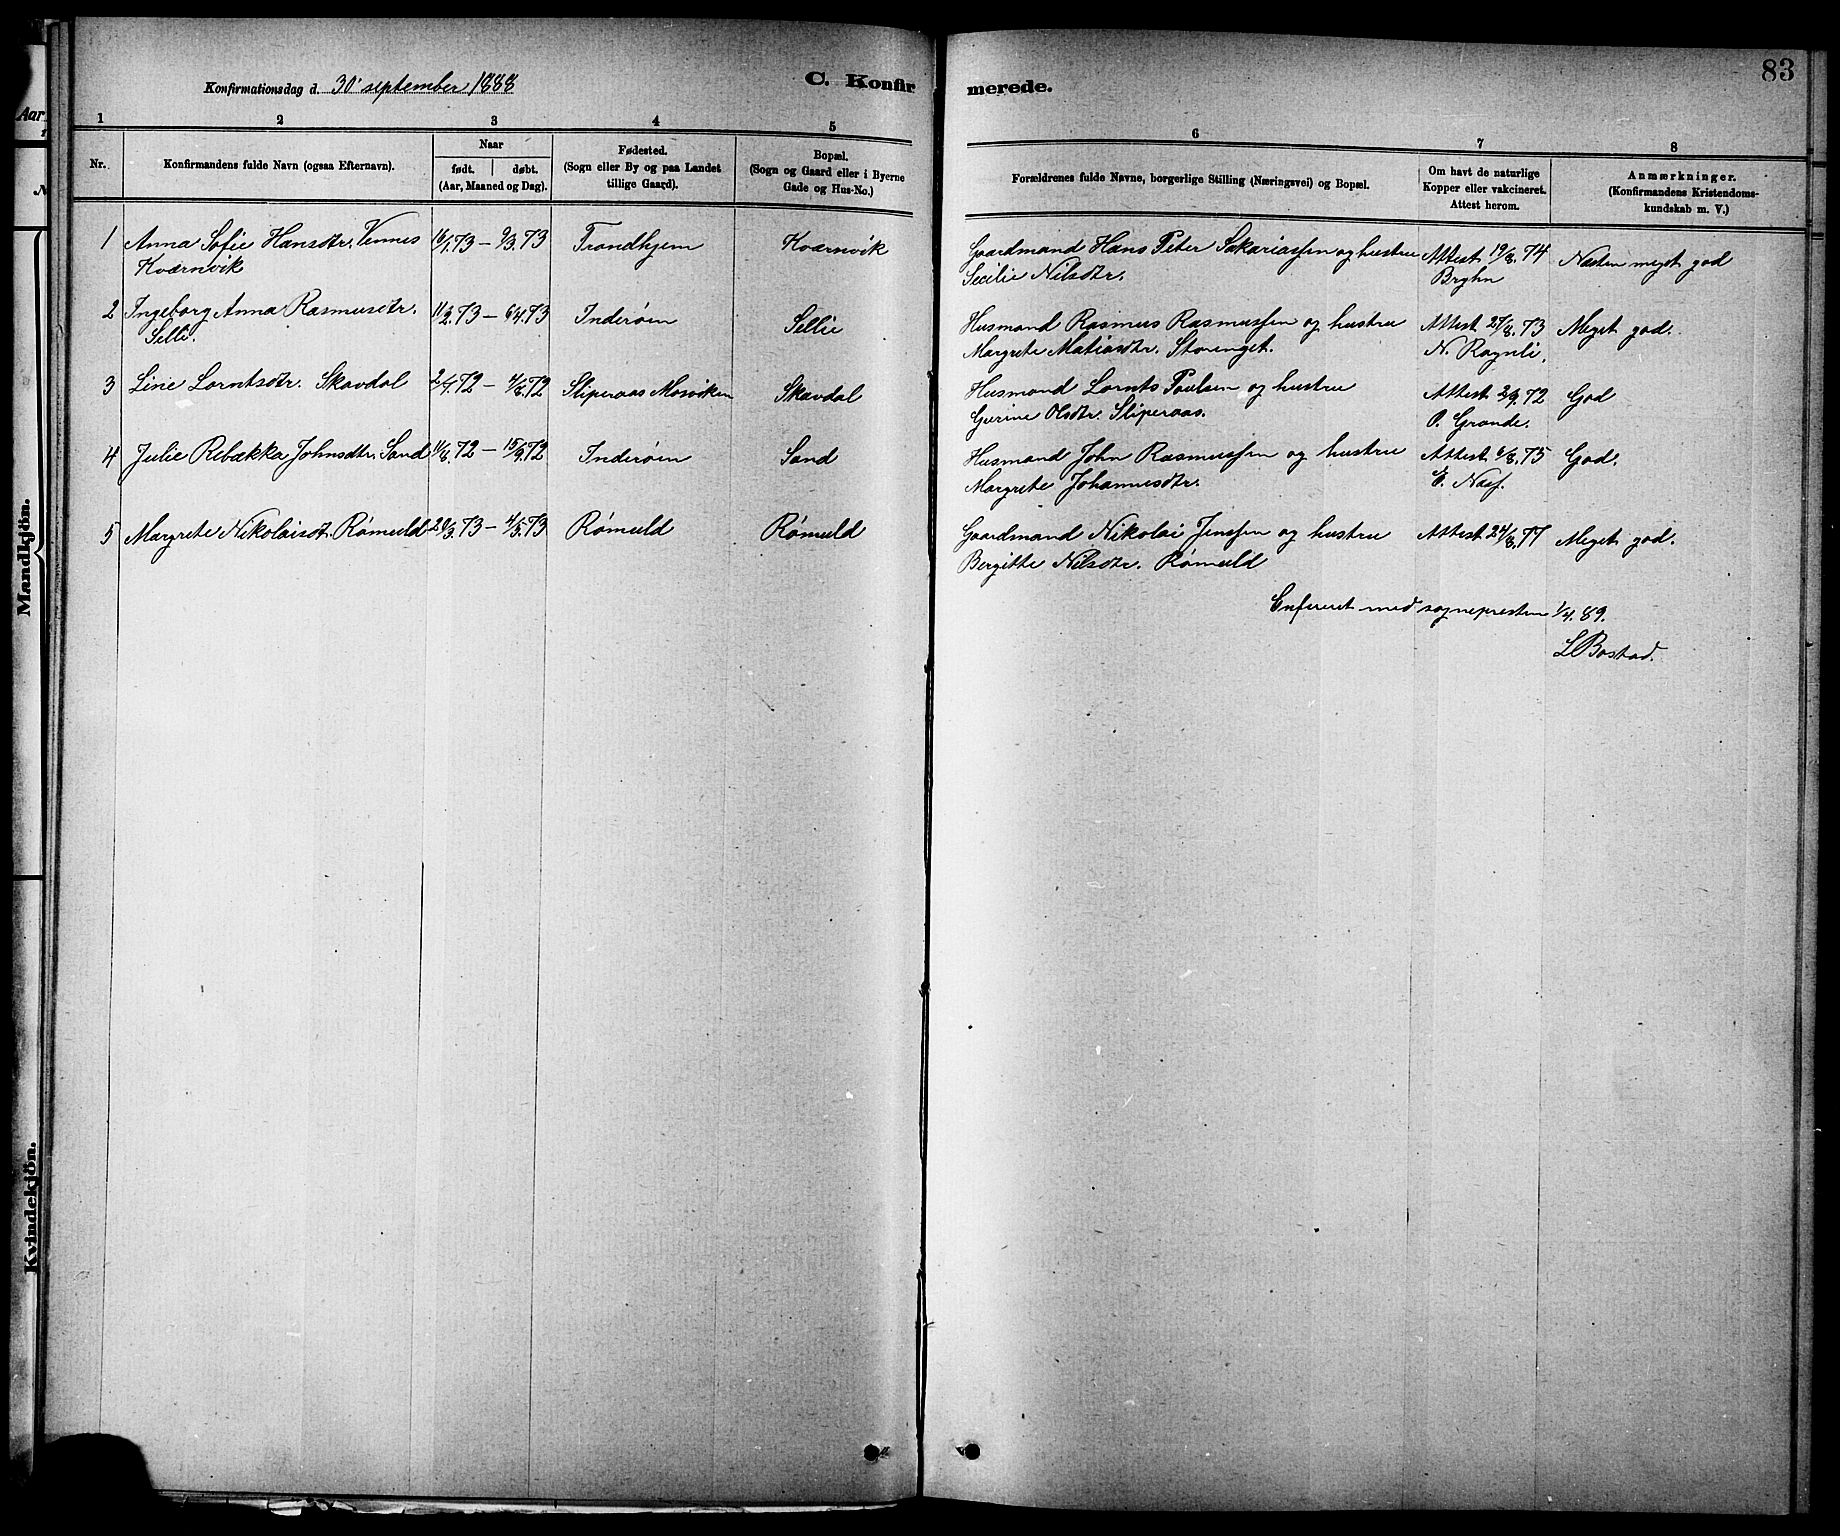 83
Konfirmationsdag d. 30' september 1888
C. Konfirmerede.
1 2 3 4 5 6 7 8
Nr.
Konfirmandens fulde Navn (ogsaa Efternavn).
Naar
født. døbt.
(Aar, Maaned og Dag).
Fødested.
(Sogn eller By og paa Landet
tillige Gaard).
Bopæl.
(Sogn og Gaard eller i Byerne
Gade og Hus-No.)
Forældrenes fulde Navne, borgerlige Stilling (Næringsvei) og Bopæl.
Om havt de naturlige
Kopper eller vakcineret.
Attest herom.
Anmærkninger.
(Konfirmandens Kristendoms-
kundskab m. V.)
1 Anna Sofie Hansdtr. Vennes 16/1 73 — 9/3.73 Trondhjem Kværnvik Gaardmand Hans Peter Sakariassen og hustru Attest 19/8.74 Næsten meget god
Kværnvik Secilie Nilsdtr. Bryhn
2 Ingeborg Anna Rasmusdtr. 11/2.73 — 6/4.73 Inderøen Sellie Husmand Rasmus Rasmussen og hustru Attest 27/8.73 Meget god.
Selli. Margrete Matiasdtr. Storenget. N. Rognli.
3 Line Lorntsdtr. Skavdal 2/4 72 — 4/8.72 Sliperaas Mosviken Skavdal Husmand Lornts Paulsen og hustru Attest 2/9.72 God
Gurine Olsdtr. Sliperaas. P. Grande.
4 Julie Rebækka Johnsdtr. Sand 11/8.72 — 15/9.72 Inderøen Sand Husmand John Rasmussen og hustru Attest 6/8.75 God.
Margrete Johannesdtr. E. Næss.
5 Margrete Nikolaisdt. Rømuld 29/3.73 — 4/5.73 Rømuld Rømuld Gaardmand Nikolai Jenssen og hustru Attest 24/8.77 Meget god.
Bergitte Nilsdtr. Rømuld
Enfereret med sognepresten 1/4.89.
L Bostad.
Aar.
Mandkjön.
Kvindekjön.